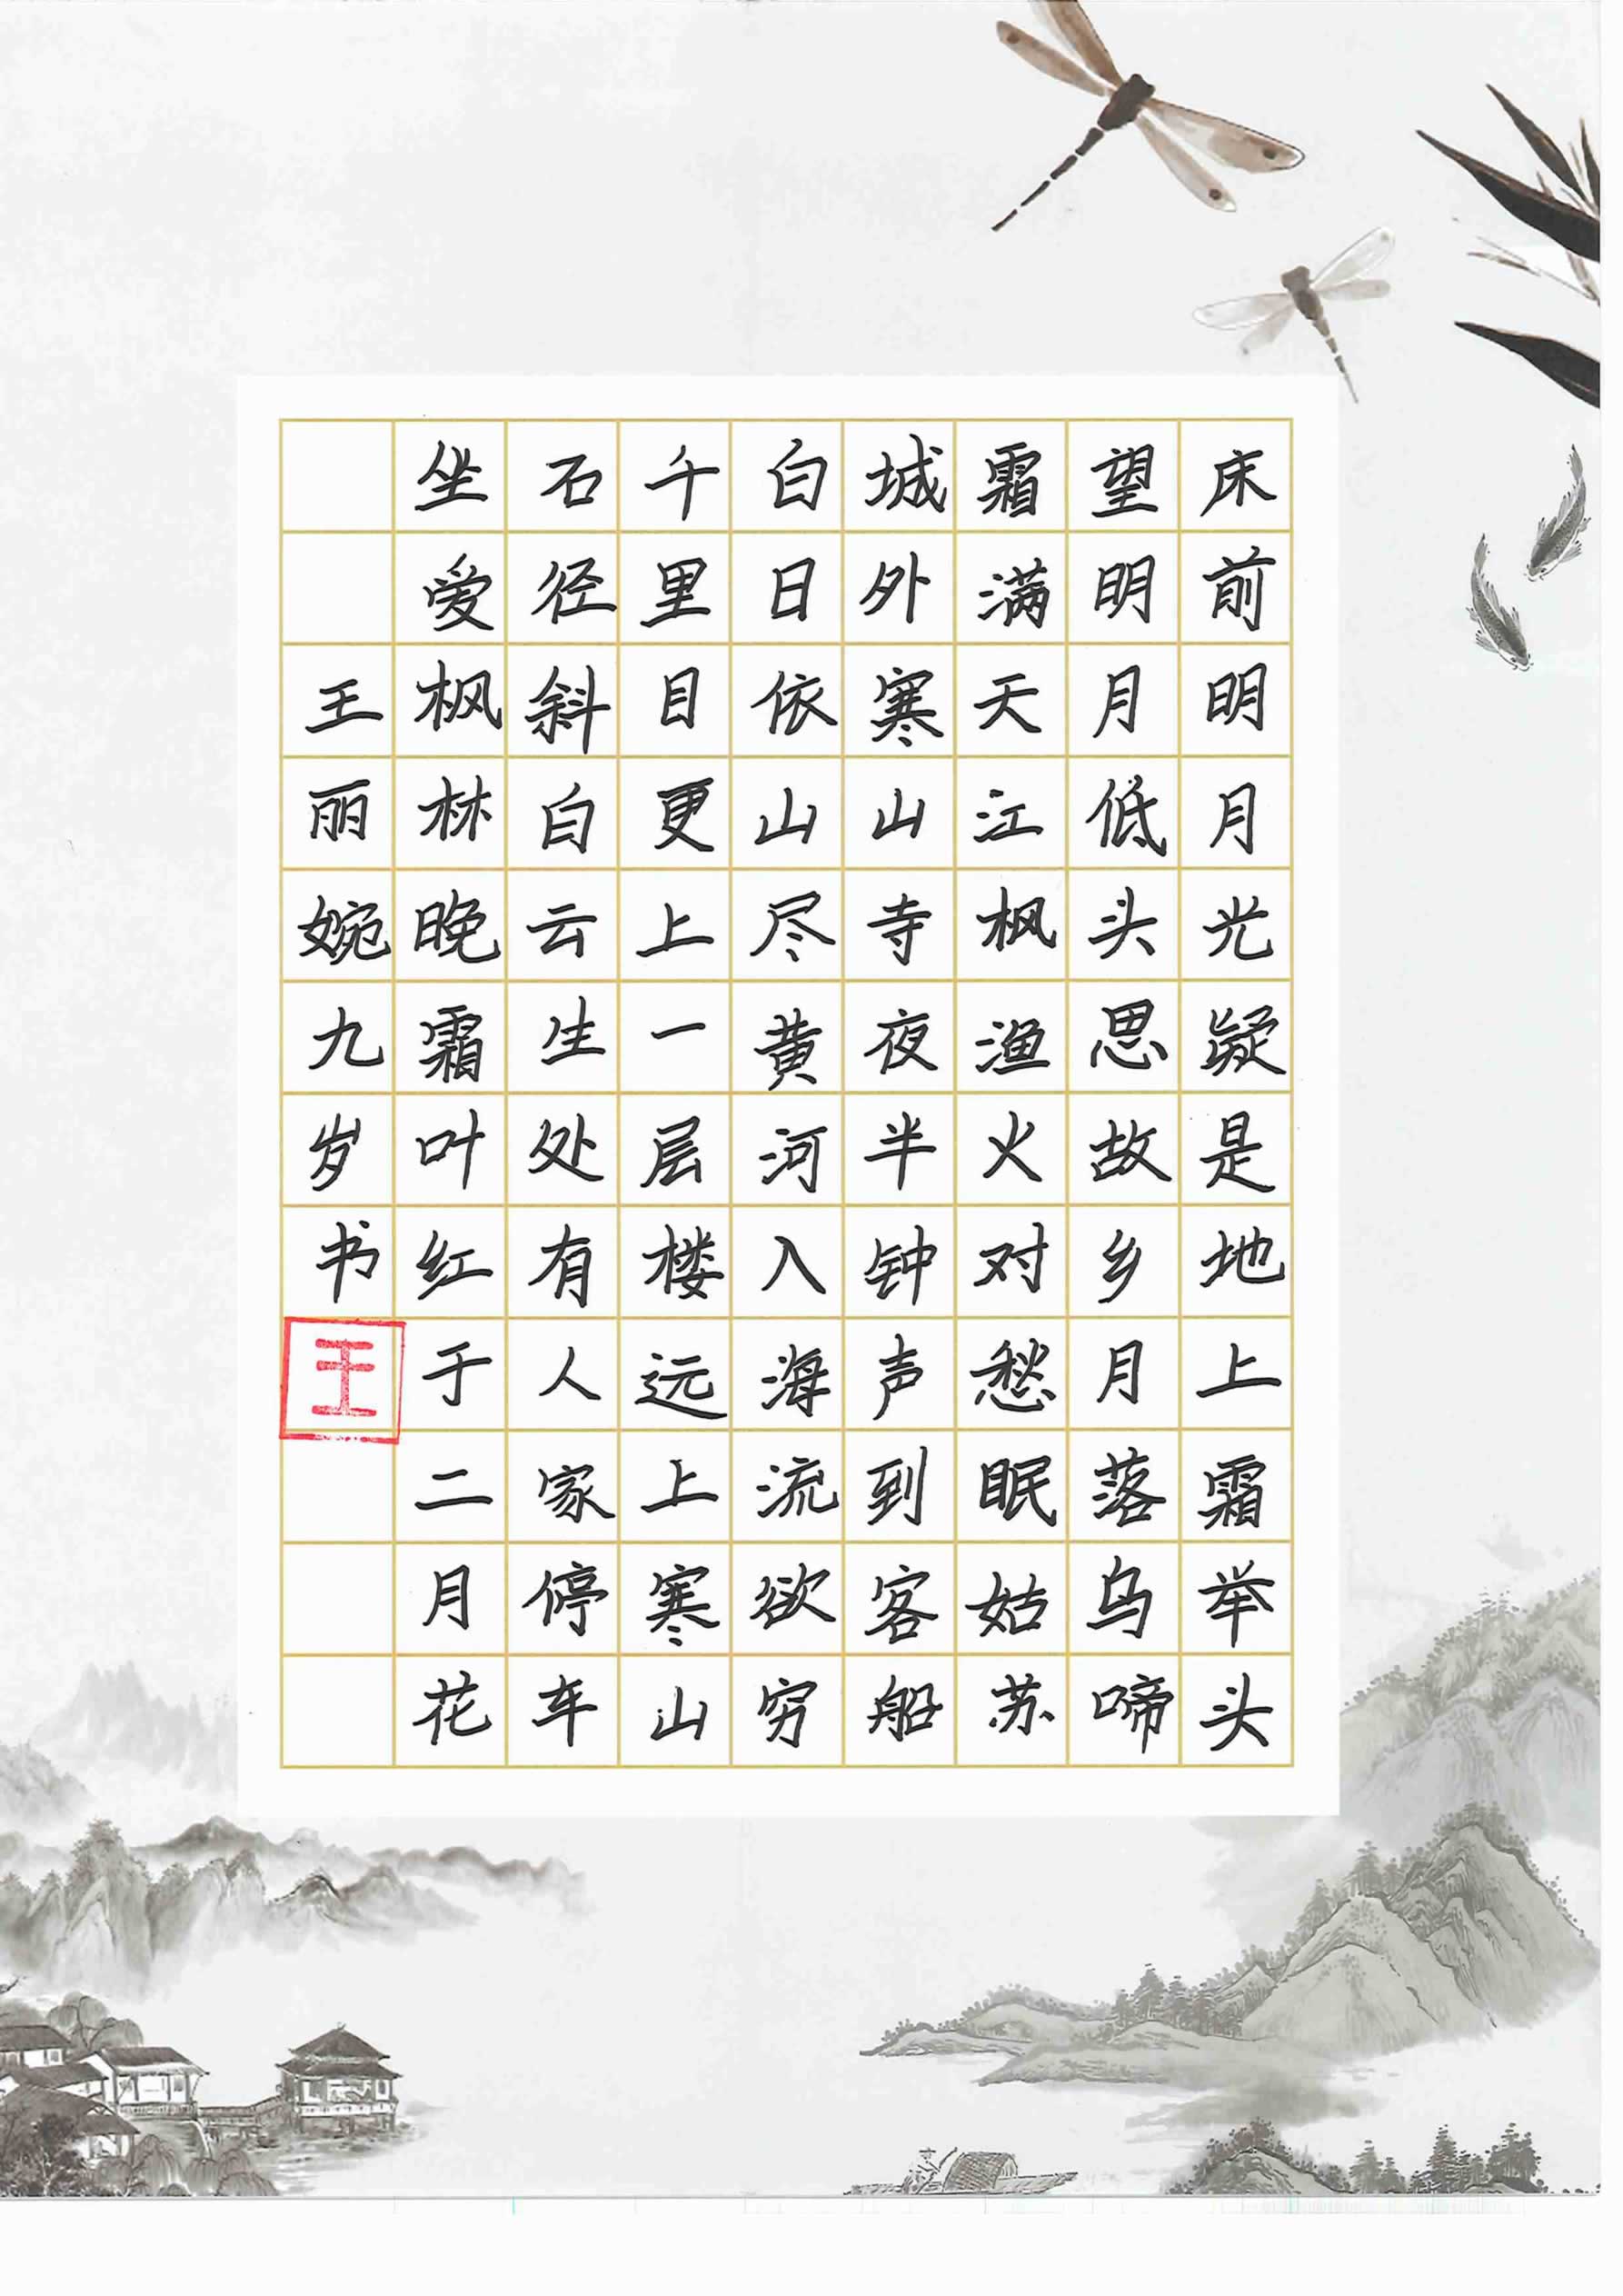 床前明月光凝是地上霜举头
望明月低头思故乡月落乌啼
霜满天江枫渔火对愁眠姑苏
城外寒山寺夜半钟声到客船
白日依山尽黄河入海流欲穷
千里目更上一层楼远上寒山
石径斜白云生处有人家停车
坐爱枫林晚霜叶红于二月花
王丽婉九岁书
王